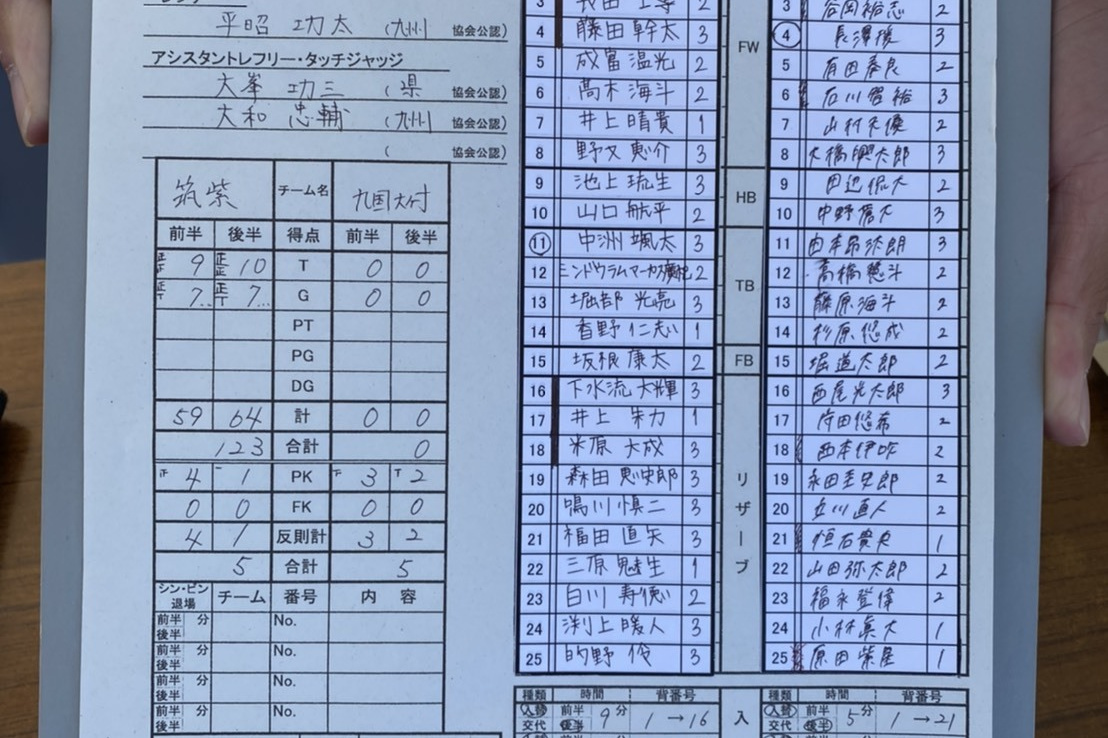 平昭 功太 (九州 協会公認)
アシスタントレフリー・タッチジャッジ
大峯 功三 (県 協会公認)
大和 忠輔 (九州 協会公認)
( 協会公認)
筑紫 チーム名 九国大付
前半 後半 得点 前半 後半
正正 9 正正 10 T 0 0
正丅 7 正丅 7 G 0 0
PT
PG
DG
59 64 計 0 0
123 合計 0
4 1 PK 3 2
0 0 FK 0 0
4 1 反則計 3 2
5 合計 5
シン・ビン 退場 チーム 番号 内容
前半 後半 分 No.
前半 後半 分 No.
前半 後半 分 No.
前半 後半 分
3 2
4 藤田 幹太 3
5 成富 温光 2
6 髙木 海斗 2
7 井上 晴貴 1
8 野又 恵介 3
9 池上 琉生 3
10 山口 航平 2
11 中洲 颯太 3
12 ミンドウラムマーカス 2
13 堀部 光亮 3
14 香野 1
15 坂根 康太 2
16 下水流 大輝 3
17 井上 朱力 1
18 米原 大成 3
19 森田 恵史郎 3
20 鳴川 慎二 3
21 福田 直矢 3
22 三原 魅生 1
23 白川 寿徳 2
24 渕上 暖人 3
25 的野 伶 3
FW
HB
TB
FB
リザーブ
3 谷岡裕志 2
4 長澤 3
5 有田 2
6 石川 3
7 山村 2
8 大橋興太郎 3
9 田辺 2
10 中野 3
11 西本 3
12 高橋 斗 2
13 藤原海斗 2
14 杉原悠成 2
15 堀 道太郎 2
16 西尾光太郎 3
17 悠希 2
18 西本伊吹 2
19 永田圭史郎 2
20 立川直人 2
21 恒石貴史 1
22 山田弥太郎 2
23 福永登偉 2
24 小林真大 1
25 原田紫 1
種類 時間 背番号
入替 交代 前半 後半 9分 1→16
入
種類 時間 背番号
入替 交代 前半 後半 5分 1→21